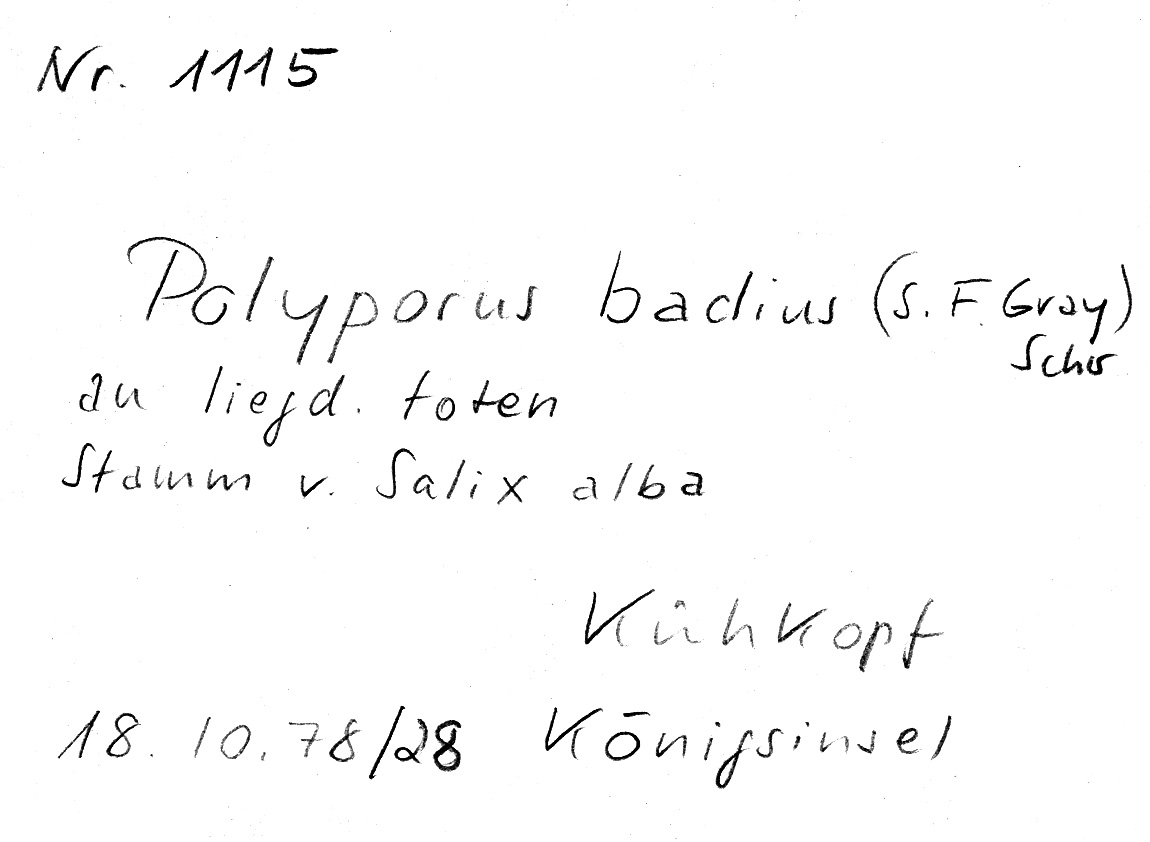 Nr. 1115
Polyporus badius (S. F. Gray)
Schw
an liegd. toten
Stamm v. Salix alba
Kühkopf
18. 10. 78/28 Königsinsel